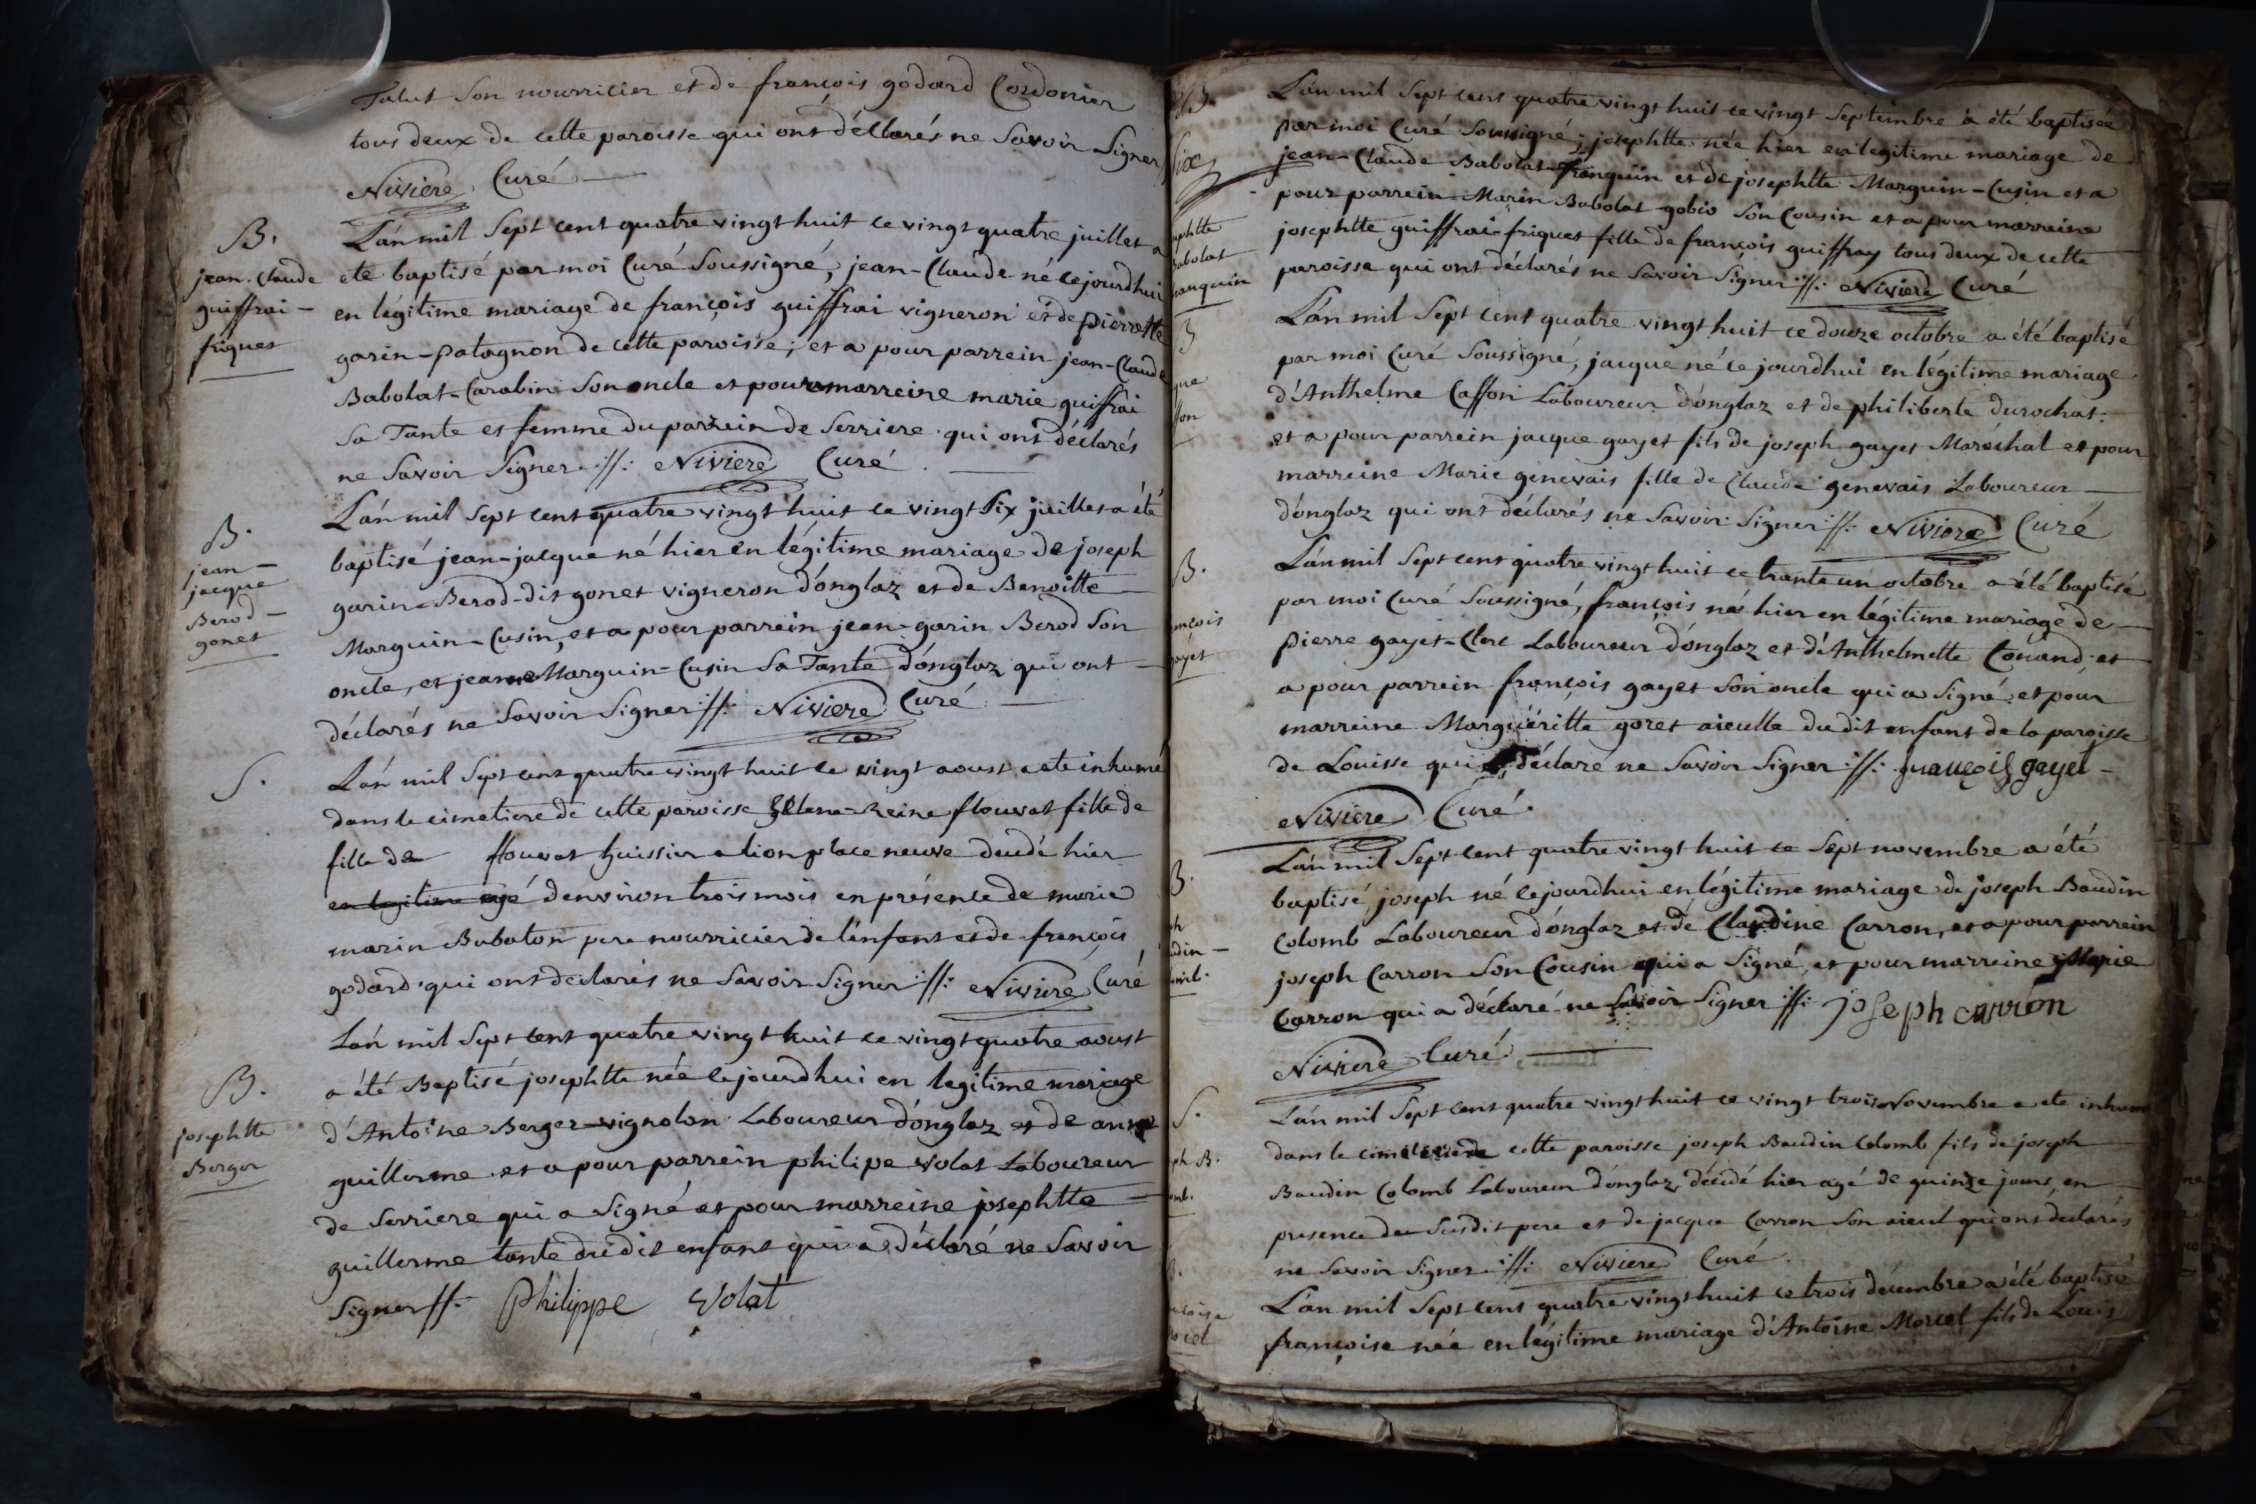 Talut son nourricier et de françois godard Cordonier
tous deux de cette paroisse qui ont déclarés ne savoir signer
Niviere Curé
B.
jean-Claude
guiffrai-
friques
L'an mil sept cent quatre vingt huit ce vingt quatre juillet a
eté baptisé par moi Curé soussigné, jean-Claude né cejourdhui
en légitime mariage de françois guiffrai vigneron et de pierrette
garin-patagnon de cette paroisse; et a pour parrein jean-Claude
Babolat-Carabin son oncle et pour marreine marie guiffrai
sa Tante et femme du parrein de serriere qui ont déclarés
ne savoir signer ://: Niviere Curé
B.
jean-
jacque
Berod-
gonet
L'an mil sept cent quatre vingt huit ce vingt six juillet a été
baptisé jean-jacque né hier en légitime mariage de joseph
garin-Berod-dit gonet vigneron d'onglaz et de Benoitte
Marguin-Cusin, et a pour parrein jean-garin Berod son
oncle, et jeanne Marguin-Cusin sa Tante d'onglaz qui ont
déclarés ne savoir signer ://: Niviere Curé
S.
L'an mil sept cent quatre vingt huit le vingt aoust a ete inhumé
dans le cimetiere de cette paroisse helene-Reine flouvat fille de
fille de flouvat huissier a lion place neuve décédé hier
en legitime agé denviron trois mois en présence de marie
marin Babolon pere nourricier de l'enfant et de françois
godard qui ont déclarés ne savoir signer ://: Niviere Curé
B.
josephtte
Berger
L'an mil sept cent quatre vingt huit ce vingt quatre aoust
a été Baptisé josephtte née cejourdhui en legitime mariage
d'Antoine Berger-vignolon Laboureur d'onglaz et de anne
guillerme et a pour parrein philipe volat Laboureur
de serriere qui a signé et pour marreine josephtte
guillerme tante dudit enfant qui a déclaré ne savoir
signer //: Philippe Volat
L'an mil sept cent quatre vingt huit ce vingt septembre a été baptisée
par moi Curé soussigné, josephtte née hier en legitime mariage de
jean-Claude Babolat-franquin et de josephtte Marguin-Cusin et a
pour parrein Marin Babolat-gobio son Cousin et a pour marreine
josephtte guiffrai-friques fille de françois guiffray tous deux de cette
paroisse qui ont déclarés ne savoir signer ://: Niviere Curé
L'an mil sept cent quatre vingt huit ce douze octobre a été baptisé
par moi Curé soussigné, jacque né ce jourdhui en légitime mariage
d'Anthelme Caffon Laboureur d'onglaz et de philiberte durochat
et a pour parrein jacque gayet fils de joseph gayet Maréchal et pour
marreine Marie genevais fille de Claude genevais Laboureur
d'onglaz qui ont déclarés ne savoir signer ://: Niviere Curé
B.
L'an mil sept cent quatre vingt huit ce trante un octobre a été baptisé
par moi Curé soussigné, françois né hier en légitime mariage de
pierre gayet-Clerc Laboureur d'onglaz et d'Anthelmette Conand et
a pour parrein françois gayet son oncle qui a signé et pour
marreine Margueritte goret aieulle du dit enfant de la paroisse
de Louisse qui a déclaré ne savoir signer ://: françois gayet
Niviere Curé
B.
L'an mil sept cent quatre vingt huit ce sept novembre a été
baptisé joseph né cejourdhui en légitime mariage de joseph Baudin
Colomb Laboureur d'onglaz et de Claudine Carron, et a pour parrein
joseph Carron son Cousin qui a signé, et pour marreine Marie
Carron qui a déclaré ne savoir signer ://: joseph carron
Niviere Curé
S.
L'an mil sept cent quatre vingt huit ce vingt trois Novembre a ete inhumé
dans le cimetiere de cette paroisse joseph Baudin Colomb fils de joseph
Baudin Colomb Laboureur d'onglaz, décédé hier agé de quinze jours, en
presence du susdit pere et de jacque Carron son aieul qui ont declarés
ne savoir signer ://: Niviere Curé
L'an mil sept cent quatre vingt huit ce trois décembre a été baptisé
françoise née en légitime mariage d'Antoine Morcel fils de Louis